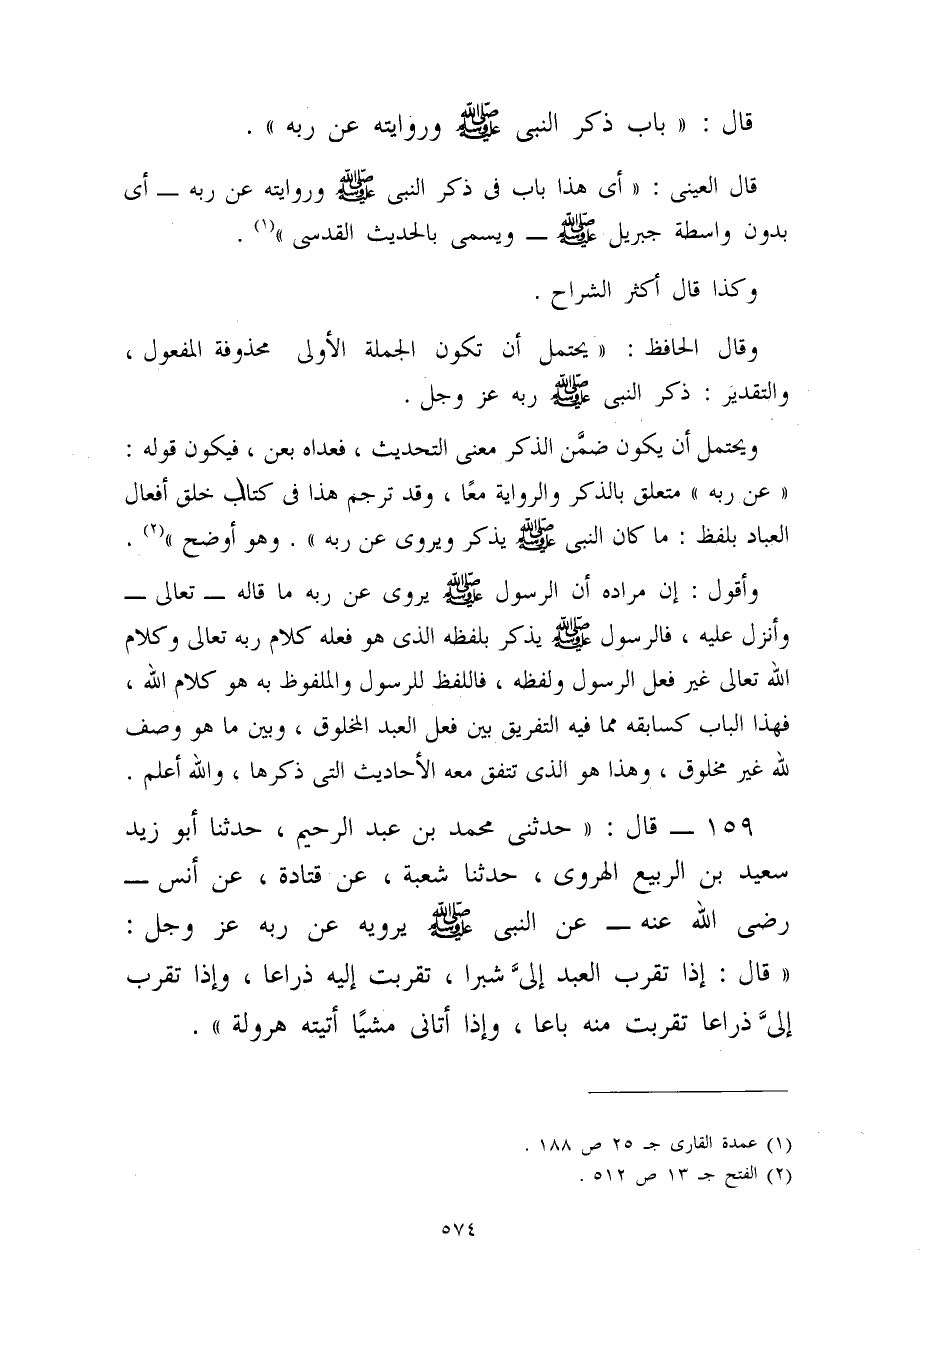 قال : « باب ذكر النبى ﷺ وروايته عن ربه » .
قال العينى : « أى هذا باب فى ذكر النبى ﷺ وروايته عن ربه ــ أى
بدون واسطة جبريل ﷺ ــ ويسمى بالحديث القدسى »(١) .
وكذا قال أكثر الشراح .
وقال الحافظ : « يحتمل أن تكون الجملة الأولى محذوفة المفعول ،
والتقدير : ذكر النبى ﷺ ربه عز وجل .
ويحتمل أن يكون ضمَّن الذكر معنى التحديث ، فعداه بعن ، فيكون قوله :
« عن ربه » متعلق بالذكر والرواية معًا ، وقد ترجم هذا فى كتاب خلق أفعال
العباد بلفظ : ما كان النبى ﷺ يذكر ويروى عن ربه » . وهو أوضح »(٢) .
وأقول : إن مراده أن الرسول ﷺ يروى عن ربه ما قاله ــ تعالى ــ
وأنزل عليه ، فالرسول ﷺ يذكر بلفظه الذى هو فعله كلام ربه تعالى وكلام
الله تعالى غير فعل الرسول ولفظه ، فاللفظ للرسول والملفوظ به هو كلام الله ،
فهذا الباب كسابقه مما فيه التفريق بين فعل العبد المخلوق ، وبين ما هو وصف
لله غير مخلوق ، وهذا هو الذى تتفق معه الأحاديث التى ذكرها ، والله أعلم .
١٥٩ ــ قال : « حدثنى محمد بن عبد الرحيم ، حدثنا أبو زيد
سعيد بن الربيع الهروى ، حدثنا شعبة ، عن قتادة ، عن أنس ــ
رضى الله عنه ــ عن النبى ﷺ يرويه عن ربه عز وجل :
« قال : إذا تقرب العبد إلىَّ شبرا ، تقربت إليه ذراعا ، وإذا تقرب
إلىَّ ذراعا تقربت منه باعا ، وإذا أتانى مشيًا أتيته هرولة » .
(١) عمدة القارى جـ ٢٥ ص ١٨٨ .
(٢) الفتح جـ ١٣ ص ٥١٢ .
٥٧٤